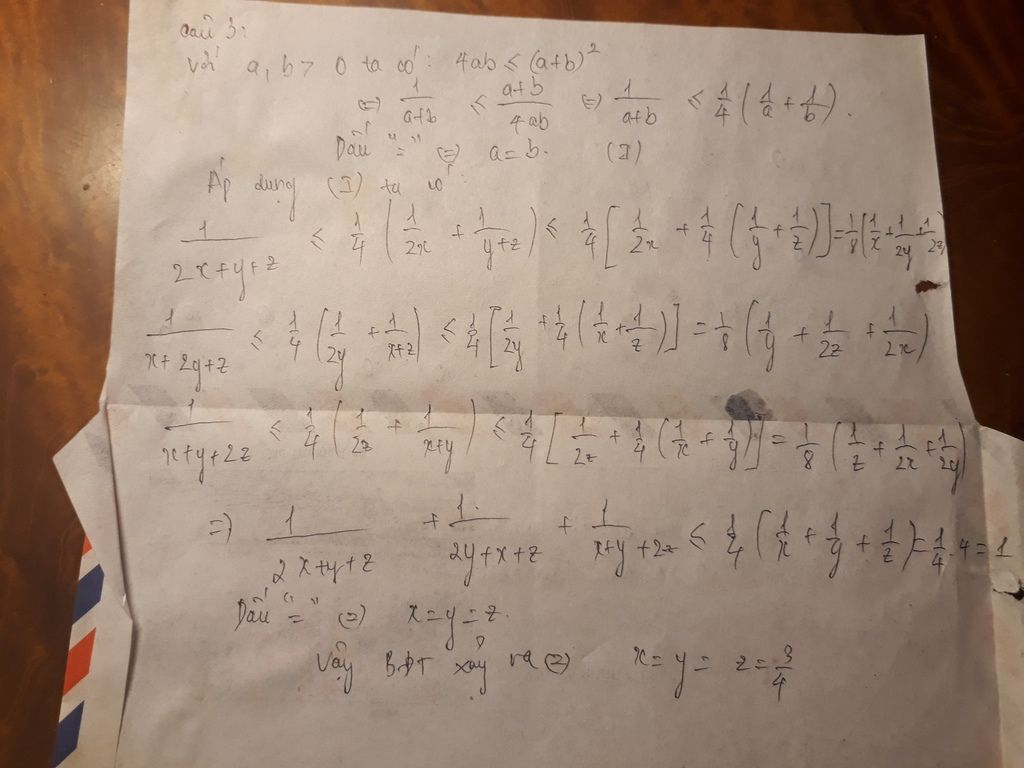 Câu 3:
Với a, b > 0 ta có: 4ab ≤ (a+b)²
(=) 1/(a+b) ≤ (a+b)/4ab (=) 1/(a+b) ≤ 1/4 (1/a + 1/b).
Dấu "=" (=) a = b. (I)
Áp dụng (I) ta có:
1/(2x+y+z) ≤ 1/4 (1/2x + 1/(y+z)) ≤ 1/4 [1/2x + 1/4 (1/y + 1/z)] = 1/8 (1/x + 1/2y + 1/2z)
1/(x+2y+z) ≤ 1/4 (1/2y + 1/(x+z)) ≤ 1/4 [1/2y + 1/4 (1/x + 1/z)] = 1/8 (1/y + 1/2z + 1/2x)
1/(x+y+2z) ≤ 1/4 (1/2z + 1/(x+y)) ≤ 1/4 [1/2z + 1/4 (1/x + 1/y)] = 1/8 (1/z + 1/2x + 1/2y)
=) 1/(2x+y+z) + 1/(2y+x+z) + 1/(x+y+2z) ≤ 1/4 (1/x + 1/y + 1/z) = 1/4 . 4 = 1
Dấu "=" (=) x = y = z.
Vậy BĐT xảy ra (=) x = y = z = 3/4